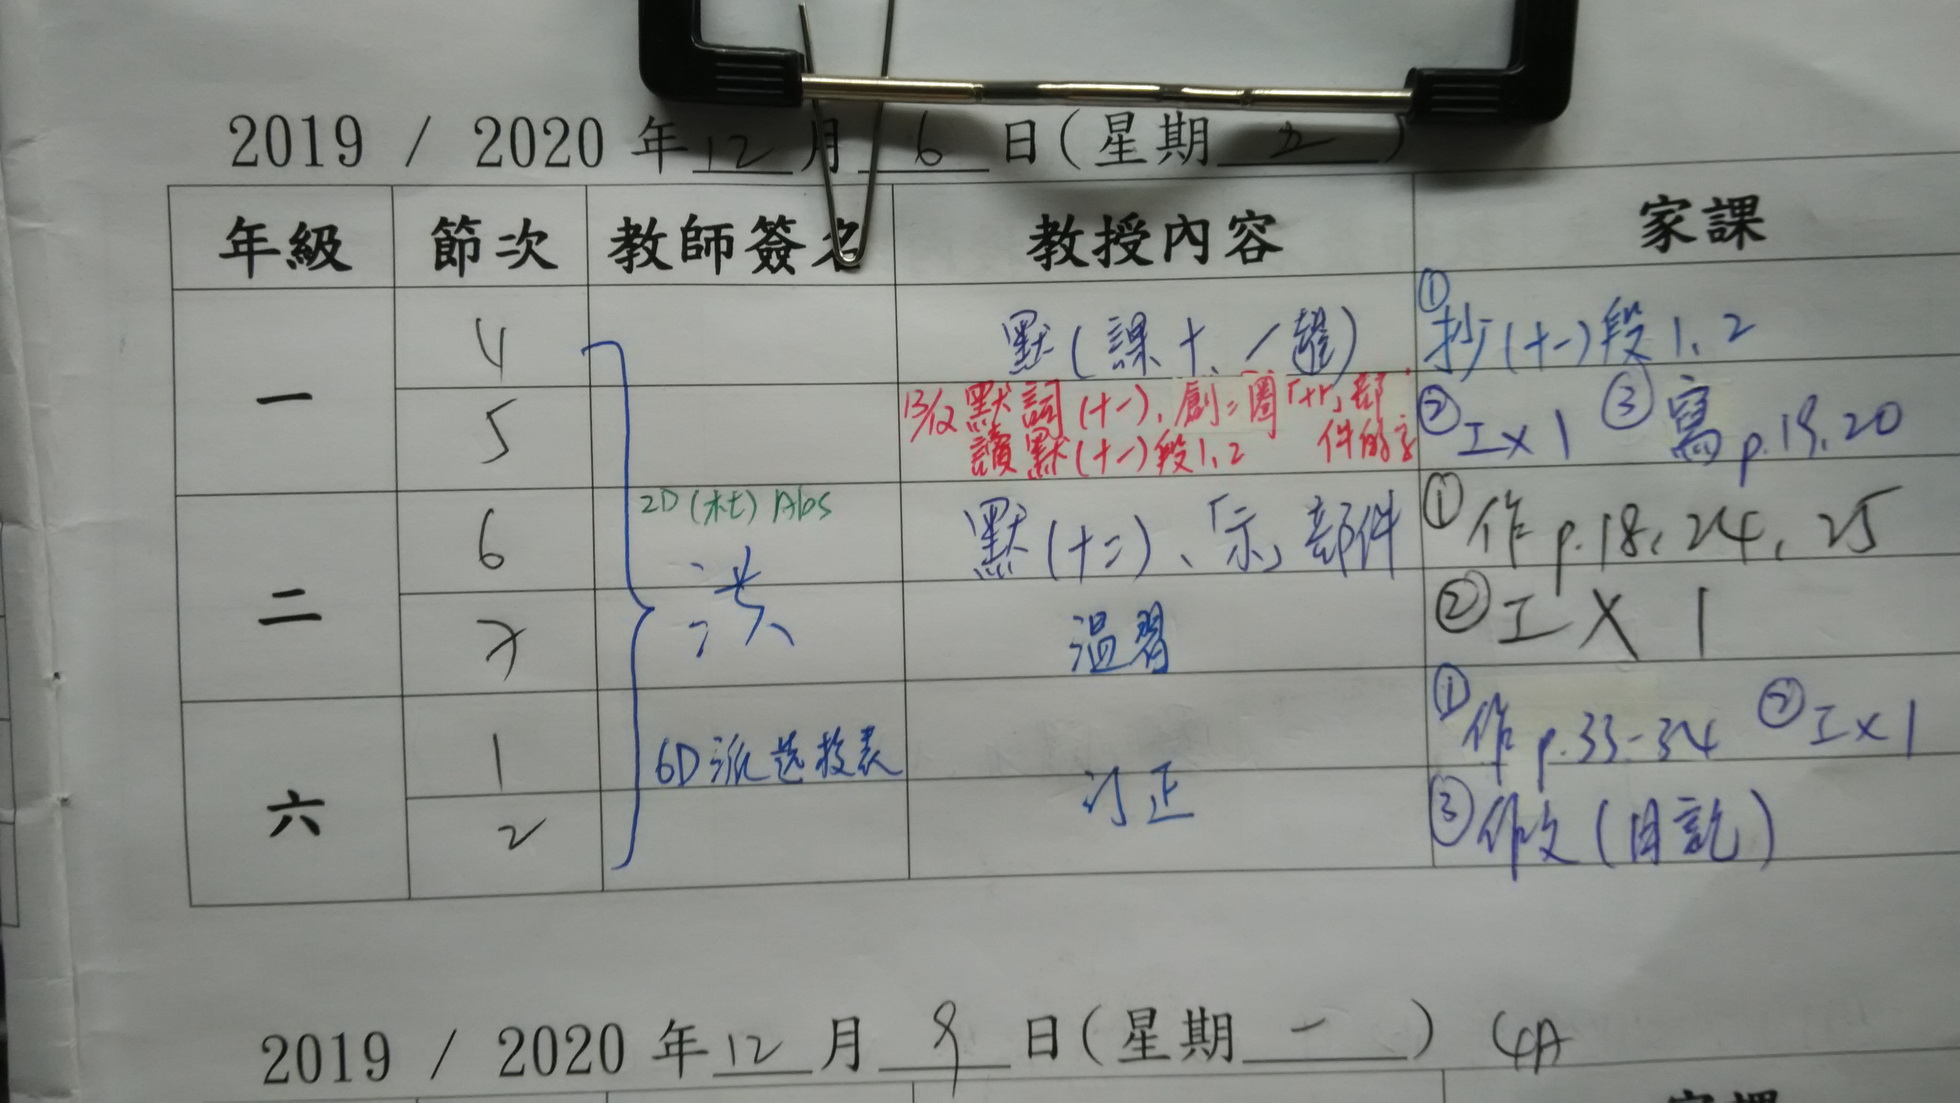 2019 / 2020 年 12 月 6 日(星期 五 )
年級 節次 教師簽名 教授內容 家課
一 4 默(課十、 ①抄(十一)段1、2
5 13/12 默詞(十一)、 圈 部件的字
讀默(十一)段1、2
②工X1 ③寫p.19,20
二 6 2D(杜) Abs 默(十二)、「示」部件 ①作p.18, 24, 25
7 洪 溫習 ②工X1
六 1 6D派選校表 訂正 ①作p.33-34 ②工X1
2 ③作文(日記)
2019 / 2020 年 12 月 9 日(星期 一 ) 4A
家課